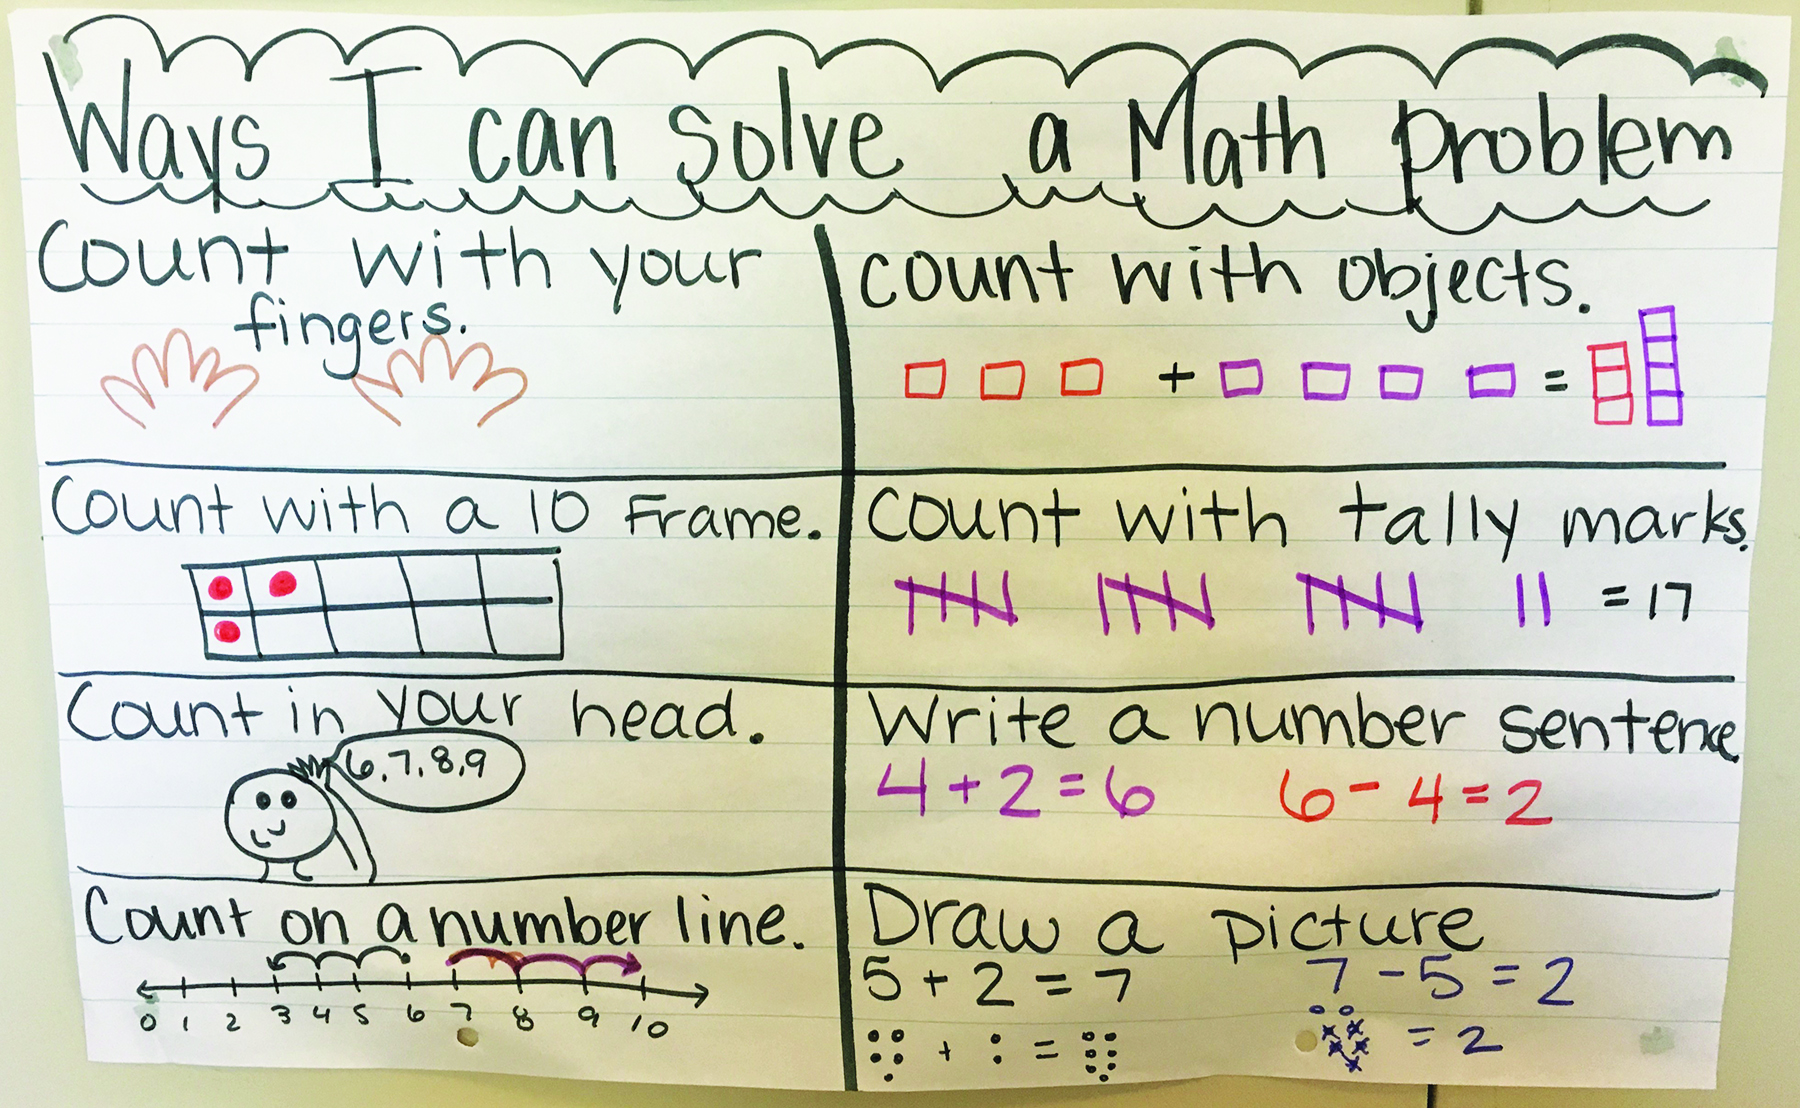 Ways I can solve a Math problem
Count with your
fingers.
count with objects.
+ =
Count with a 10 Frame.
Count with tally marks.
= 17
Count in your head.
6, 7, 8, 9
Write a number sentence
4 + 2 = 6 6 - 4 = 2
Count on a number line.
0 1 2 3 4 5 6 7 8 9 10
Draw a picture
5 + 2 = 7 7 - 5 = 2
+ = = 2